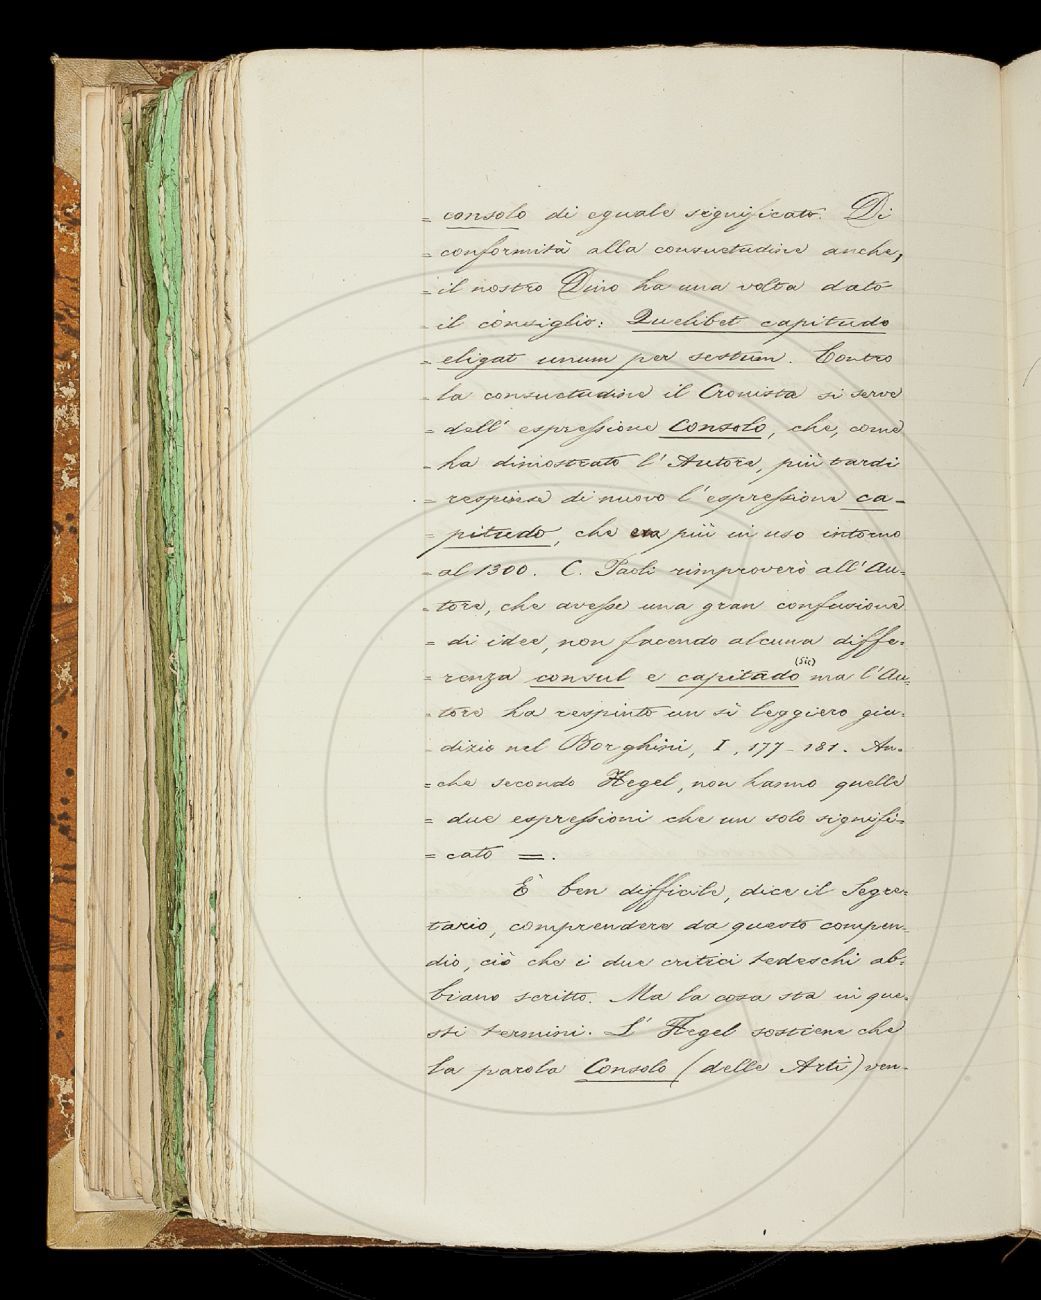 = consolo di eguale significato. Di
= conformità alla consuetudine anche,
= il nostro Dino ha una volta dato
= il consiglio: Quelibet capitudo
= eligat unum per sextum. Contro
= la consuetudine il Cronista si serve
= dell' espressione Consolo, che, come
= ha dimostrato l' Autore, più tardi
= respinse di nuovo l' espressione ca-
= pitudo, che era più in uso intorno
= al 1300. C. Paoli rimproverò all' Au=
= tore, che avesse una gran confusione
= di idee, non facendo alcuna diffe=
= renza consul e capitado (sic) ma l' Au=
= tore ha respinto un sì leggiero giu=
= dizio nel Borghini, I, 177-181. An=
= che secondo Hegel, non hanno quelle
= due espressioni che un solo signifi=
= cato =.
È ben difficile, dice il Segre=
tario, comprendere da questo compen=
dio, ciò che i due critici tedeschi ab=
biano scritto. Ma la cosa sta in que=
sti termini. L' Hegel sostiene che
la parola Consolo (delle Arti) ven=